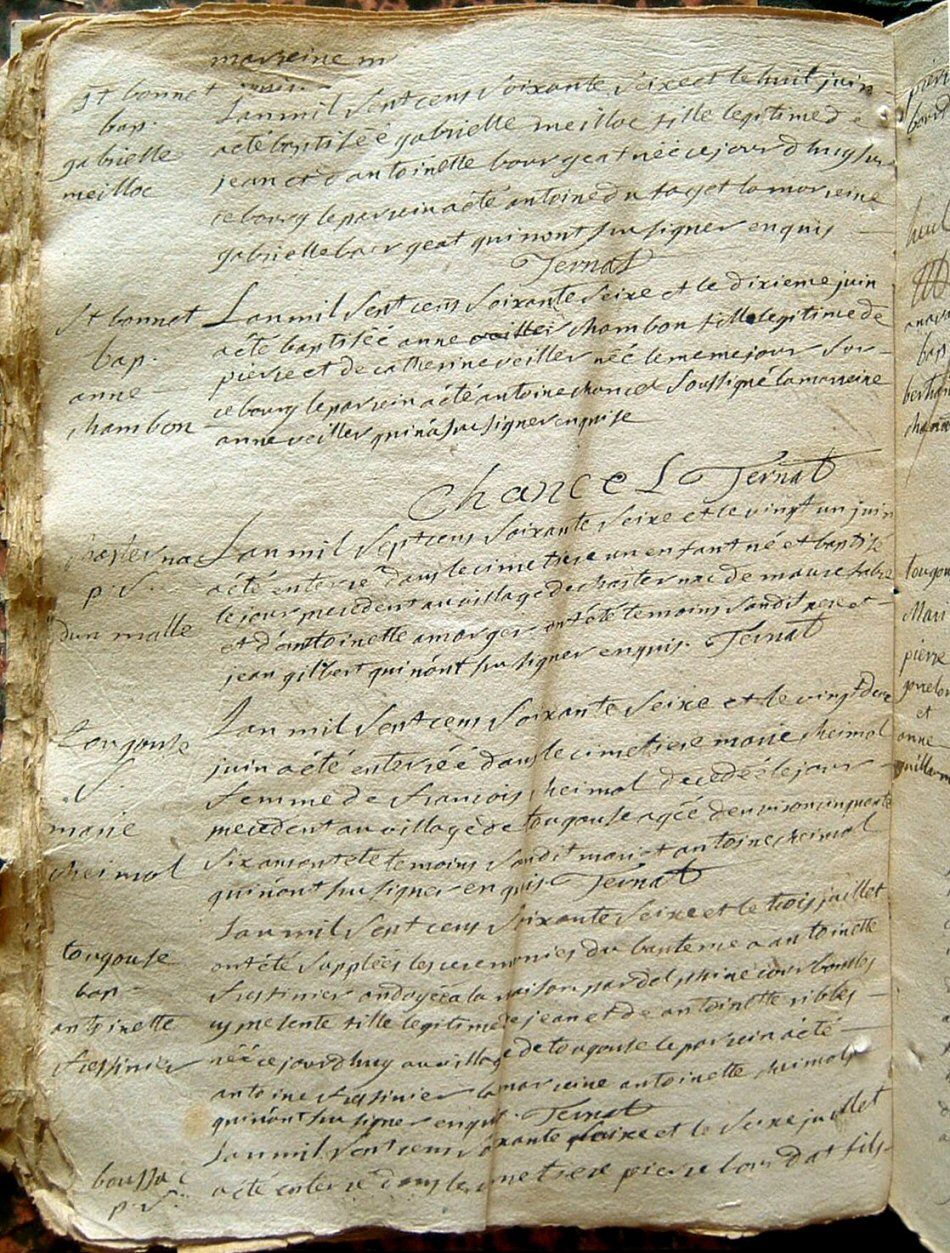 marreine m
St bonnet
bap.
gabrielle
meilloc
Lan mil sent cens soixante seize et le huit juin
a été baptisée gabrielle meilloc fille legitime de
jean et d'antoinette bourgeat née ce jourd'huy sur
ce bourg le parrein a été antoine du fayet la marreine
gabrielle bourgeat qui n'ont sçu signer enquis
Ternat
St bonnet
bap.
anne
chambon
Lan mil sent cens soixante seize et le dixieme juin
a été baptisée anne chambon fille legitime de
pierre et de catherine veiller née le meme jour sur
ce bourg le parrein a été antoine chancel soussigné la marreine
anne veiller qui n'a sçu signer enquise
Chancel Ternat
chasternac
p. S.
d'un malle
Lan mil sept cens soixante seize et le vingt un juin
a été enterré dans le cimetiere un enfant né et baptisé
le jour precedent au village de chasternac de maurice
et d'antoinette amarger ont été temoins sondit pere et
jean gilbert qui n'ont sçu signer enquis. Ternat
tougouse
S.
marie
cheimol
Lan mil sent cens soixante seize et le vingt deux
juin a été enterrée dans le cimetiere marie cheimol
femme de francois cheimol decedée le jour
precedent au village de tougouse agée d'environ cinquante
six ans ont été temoins sondit mari et antoine cheimol
qui n'ont sçu signer enquis Ternat
tougouse
bap.
antoinette
fressinier
Lan mil sent cens soixante seize et le trois juillet
ont été supplées les ceremonies du bapteme a antoinette
fressinier ondoyée a la maison par delphine
cy presente fille legitime de jean et de antoinette ribbes
née ce jourd'huy au village de tougouse le parrein a été
antoine fressinier la marreine antoinette cheimol
qui n'ont sçu signer enquis. Ternat
boussac
p. S.
Lan mil sent cens soixante seize et le seize juillet
a été enterré dans le cimetiere pierre fils
tougou
pierre
et
anne
guillaum